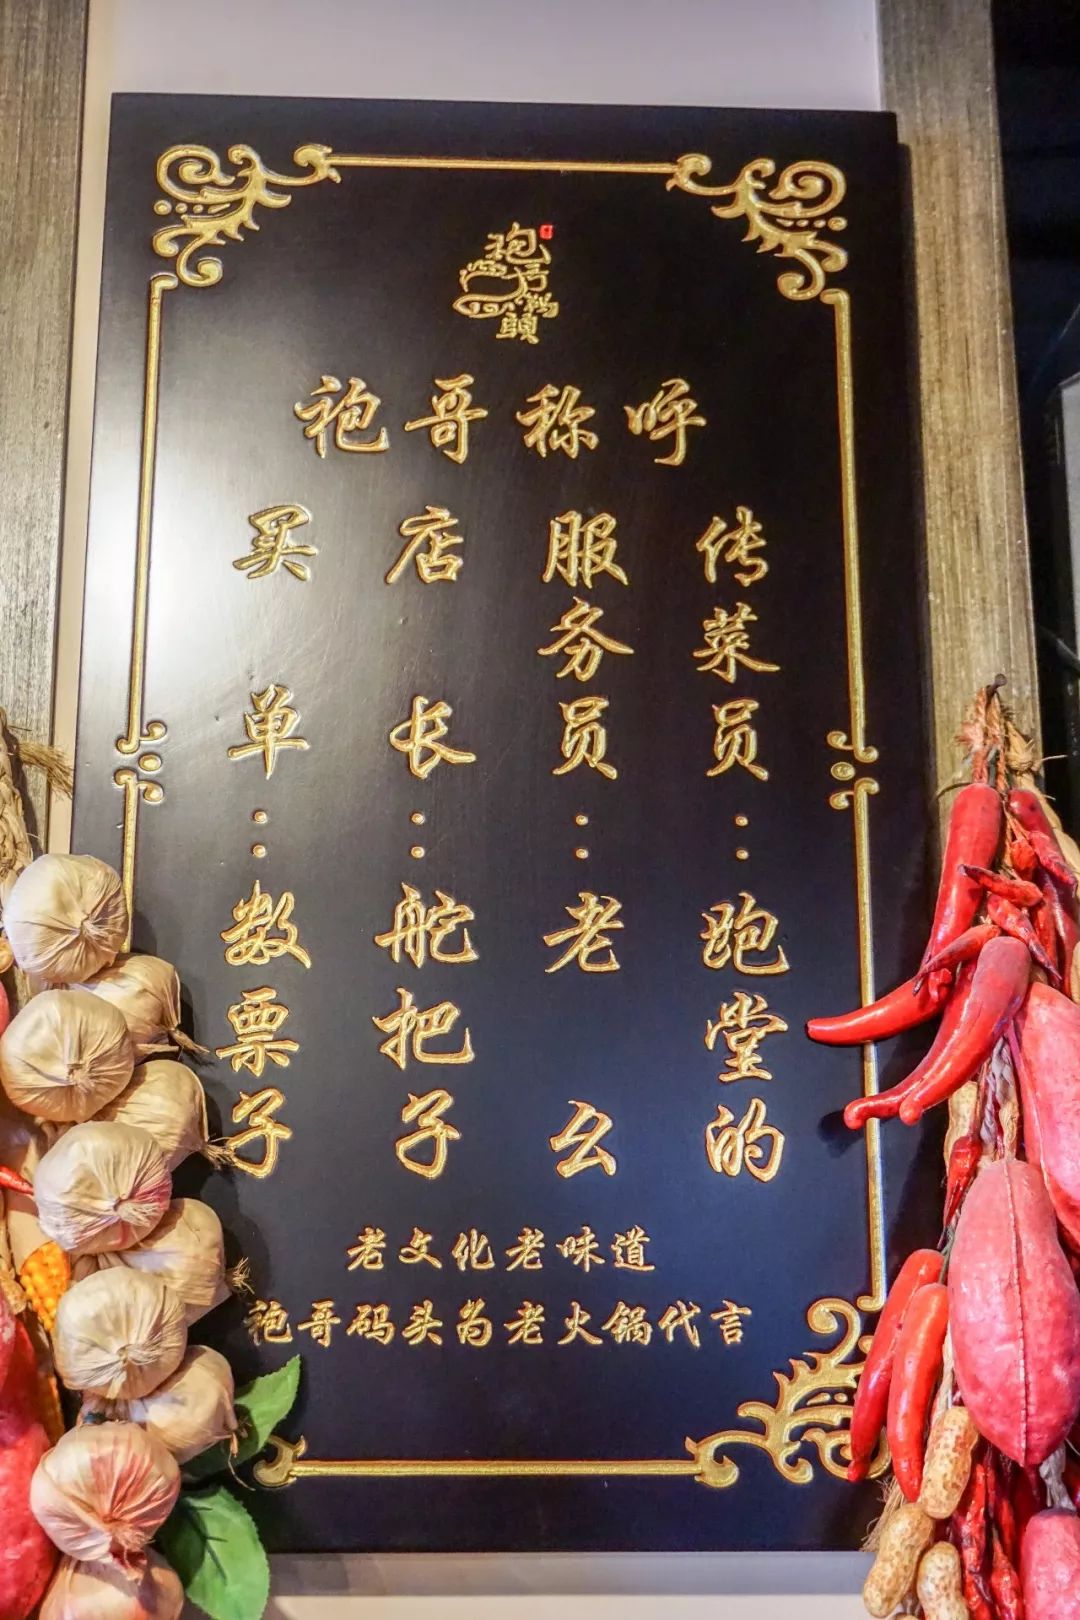 袍哥码頭
袍哥称呼
传菜员：跑堂的
服务员：老么
店长：舵把子
买单：数票子
老文化老味道
袍哥码头为老火锅代言